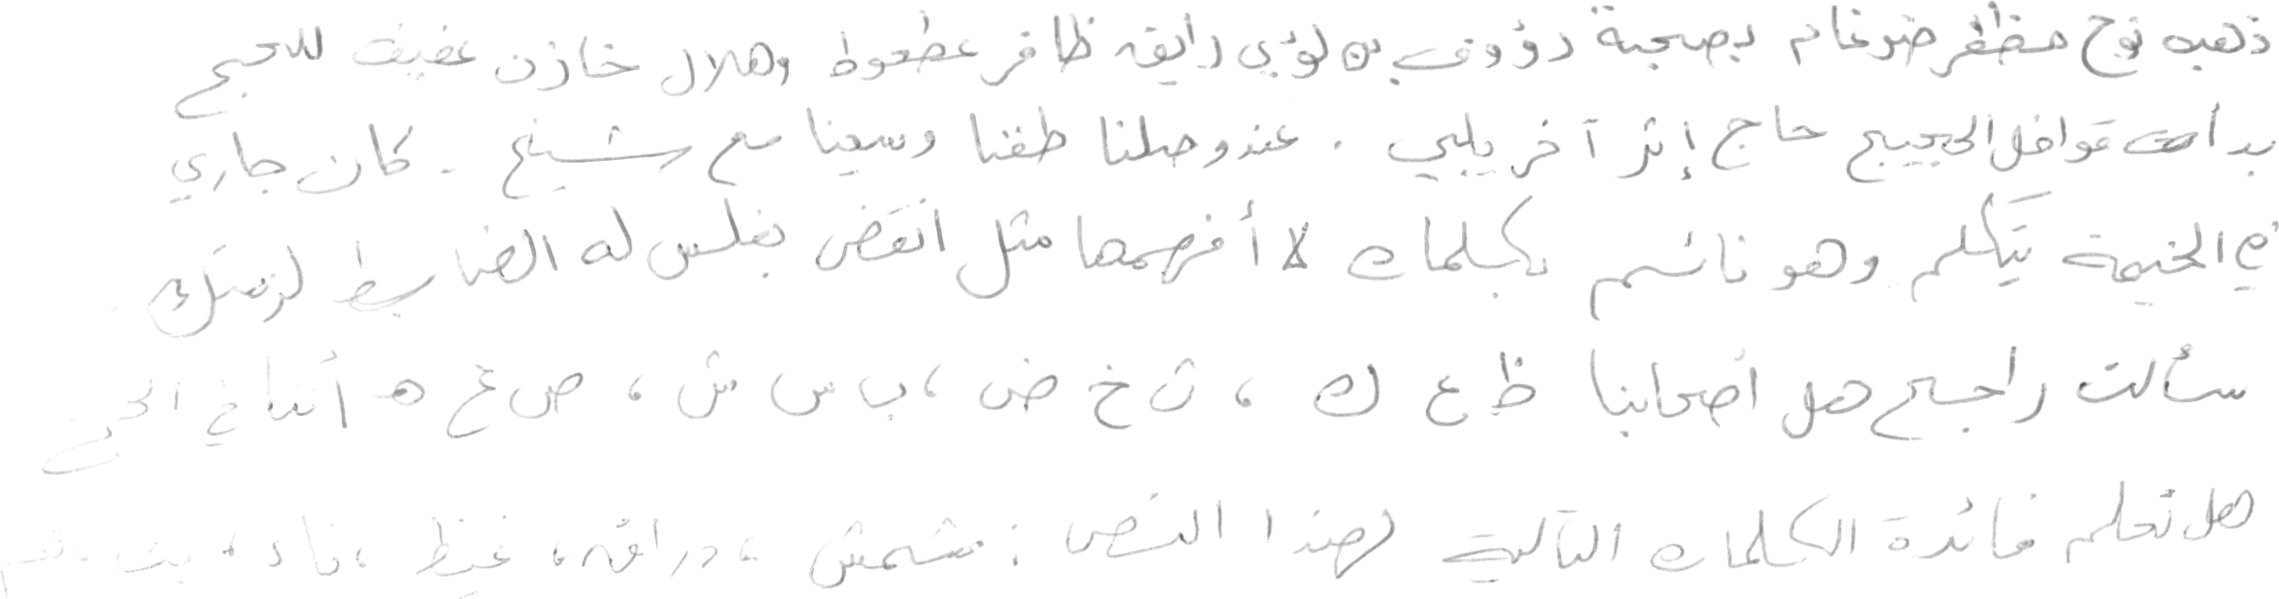 ذهب نوح مظفر ضرغام بصحبة رؤوف بن لؤي رايق ظافر عطعوط وهلال خازن عفيف للحج
بدأت قوافل الحجيج حاج إثر آخر يلبي . عند وصلنا طفنا وسعينا مع شيخ . كان جاري
في الخيمة يتكلم وهو نائم بكلمات لا أفهمها مثل انقض بفلس له الضابط
سألت راجح هل أصحابنا ظ ع ك ، ث خ ض ، ب س ش ، ص غ ه أتينا في الحج
هل تعلم فائدة الكلمات التالية لهذا النص : مشمش ، دراق ، غيظ ، فاد ، بيت